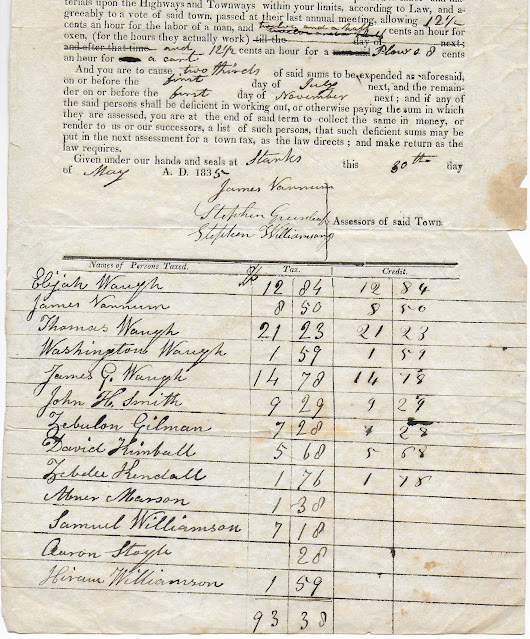 terials upon the Highways and Townways within your limits, according to Law, and a-
greeably to a vote of said town, passed at their last annual meeting, allowing 12 1/2
cents an hour for the labor of a man, and twelve and a half cents an hour for
oxen, (for the hours they actually work) till the day of next;
and after that time and 12 1/2 cents an hour for a Plow & 8 cents
an hour for a cart
And you are to cause two thirds of said sums to be expended as aforesaid,
on or before the first day of July next, and the remain-
der on or before the first day of November next; and if any of
the said persons shall be deficient in working out, or otherwise paying the sum in which
they are assessed, you are at the end of said term to collect the same in money, or
render to us or our successors, a list of such persons, that such deficient sums may be
put in the next assessment for a town tax, as the law directs; and make return as the
law requires.
Given under our hands and seals at Starks this 30th day
of May A. D. 1835
James Vannum
Stephen Greenleaf
Stephen Williamson
Assessors of said Town
Names of Persons Taxed. Tax. Credit.
Elijah Waugh 12 84 12 84
James Vannum 8 50 8 50
Thomas Waugh 21 23 21 23
Washington Waugh 1 59 1 59
James G. Waugh 14 78 14 78
John H. Smith 9 29 9 29
Zebulon Gilman 7 28 28
David Kimball 5 68 5 68
Zebdee Kendall 1 76 1 78
Abner Marson 1 38
Samuel Williamson 7 18
Aaron Stoyle 28
Hiram Williamson 1 59
93 38